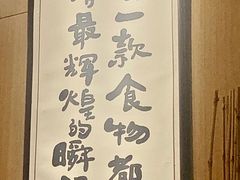 一款食物都
最辉煌的瞬